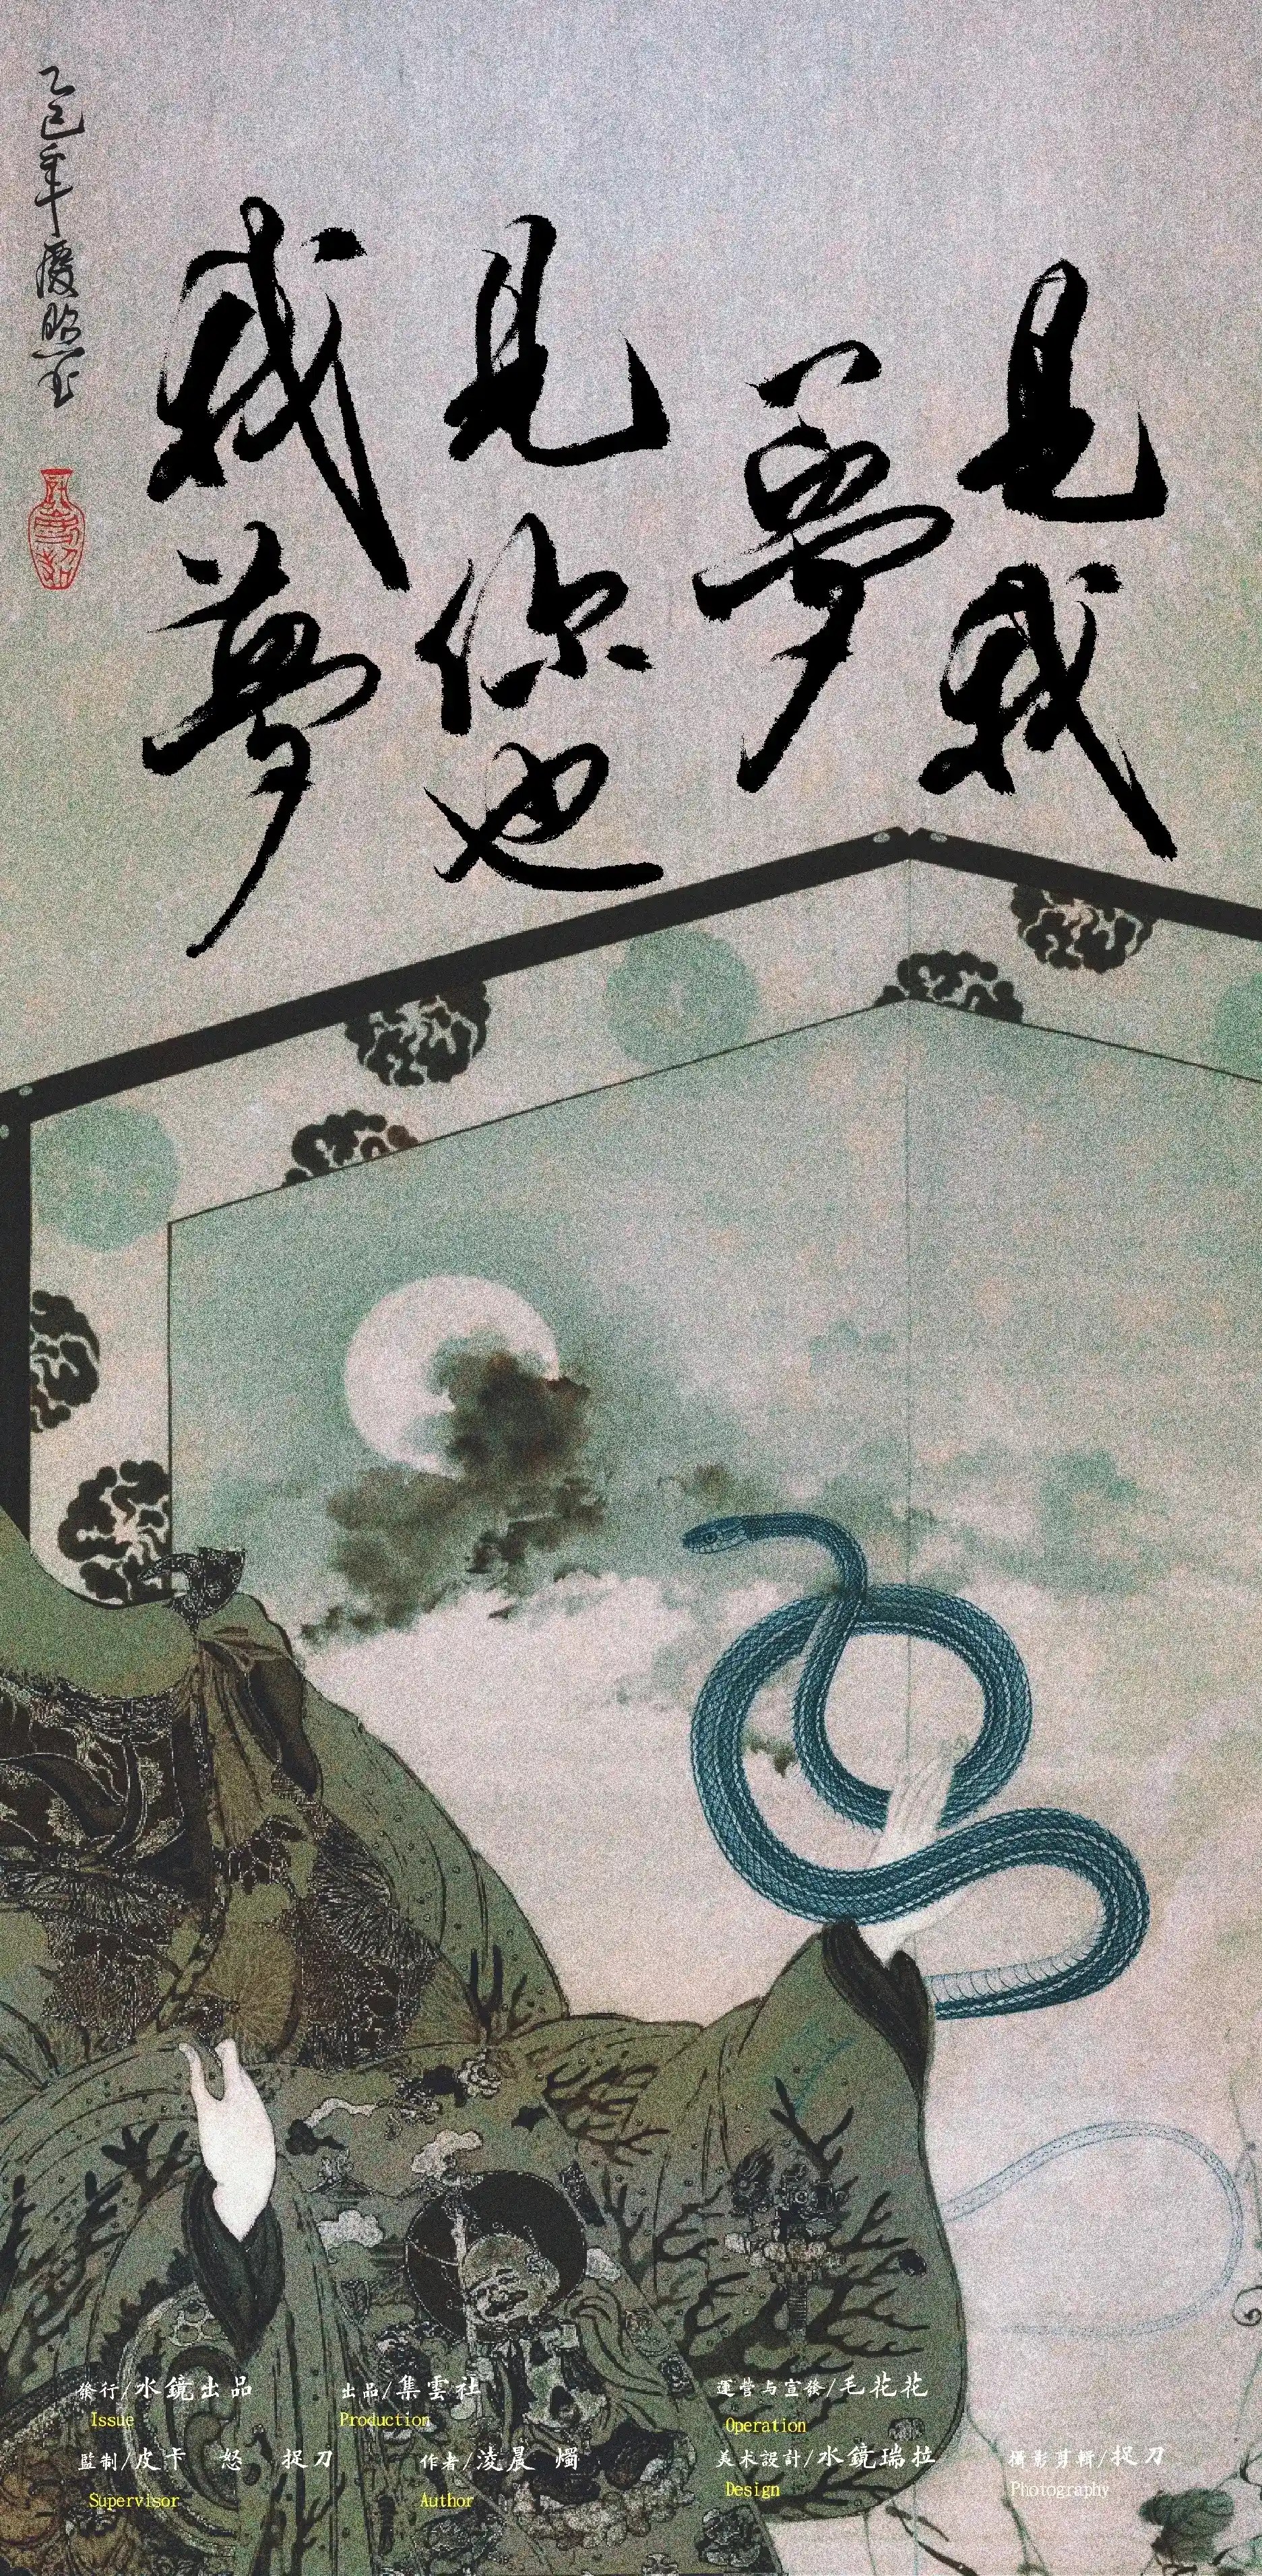 乙巳年慶照书
我夢
見你也
夢
見我
發行/水鏡出品
Issue
出品/集雲社
Production
運營与宣發/毛花花
Operation
監制/皮卡 怒 捉刀
Supervisor
作者/淩晨 燭
Author
美术設計/水鏡瑞拉
Design
攝影剪輯/捉刀
Photography